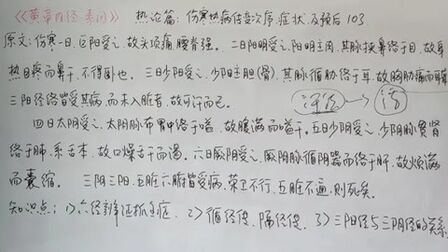 《黄帝内经·素问》 热论篇:伤寒热病传变次序.症状.及预后 103
原文:伤寒一日,巨阳受之,故头项痛,腰脊强。二日阳明受之.阳明主肉,其脉挟鼻络于目,故身
热目疼而鼻干,不得卧也。三日少阳受之,少阳主胆(骨).其脉循胁络于耳,故胸胁痛而耳聋
三阳经络皆受其病,而未入脏者,故可汗而已。
四日太阴受之,太阴脉布胃中络于嗌,故腹满而嗌干。五日少阴受之,少阴脉贯肾
络于肺.系舌本.故口燥舌干而渴。六日厥阴受之,厥阴脉循阴器而络于肝,故烦满
而囊缩。三阴三阳.五脏六腑皆受病,荣卫不行,五脏不通,则死矣
知识点:1)六经辨证抓主症. 2)循经传,隔经传. 3)三阳经与三阴经的关系